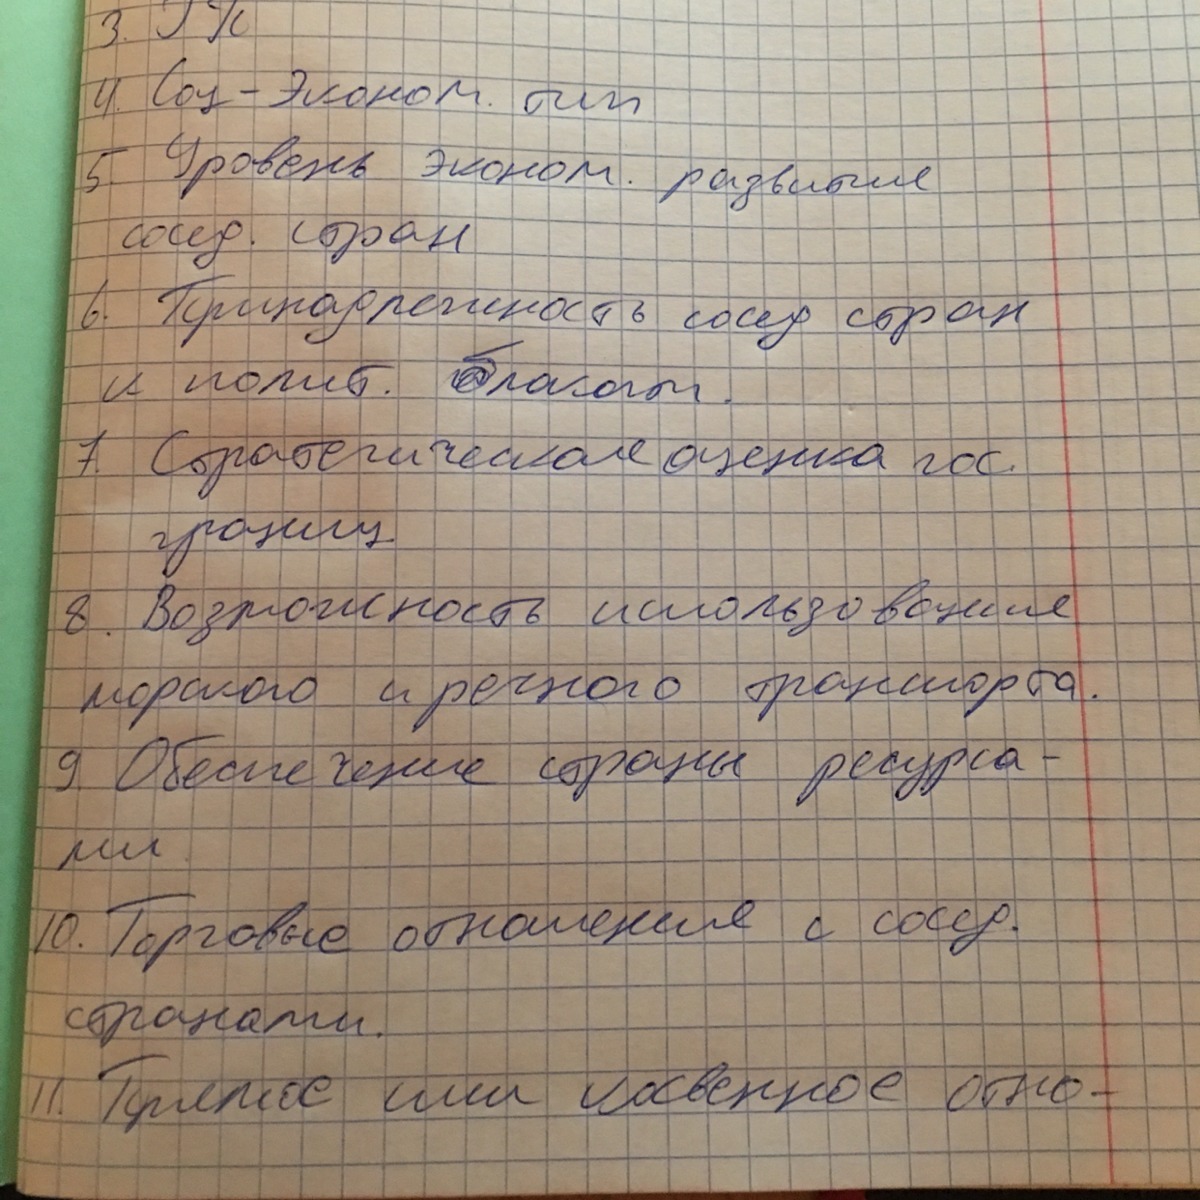 3. ГП
4. Соц-Эконом. тип
5. Уровень эконом. развития
сосед. стран
6. Принадлежность сосед стран
к полит. блокам.
7. Стратегическая оценка гос.
границ
8. Возможность использования
морского и речного транспорта.
9. Обеспечение страны ресурса-
ми
10. Торговые отношения с сосед.
странами.
11. Прямое или косвенное отно-